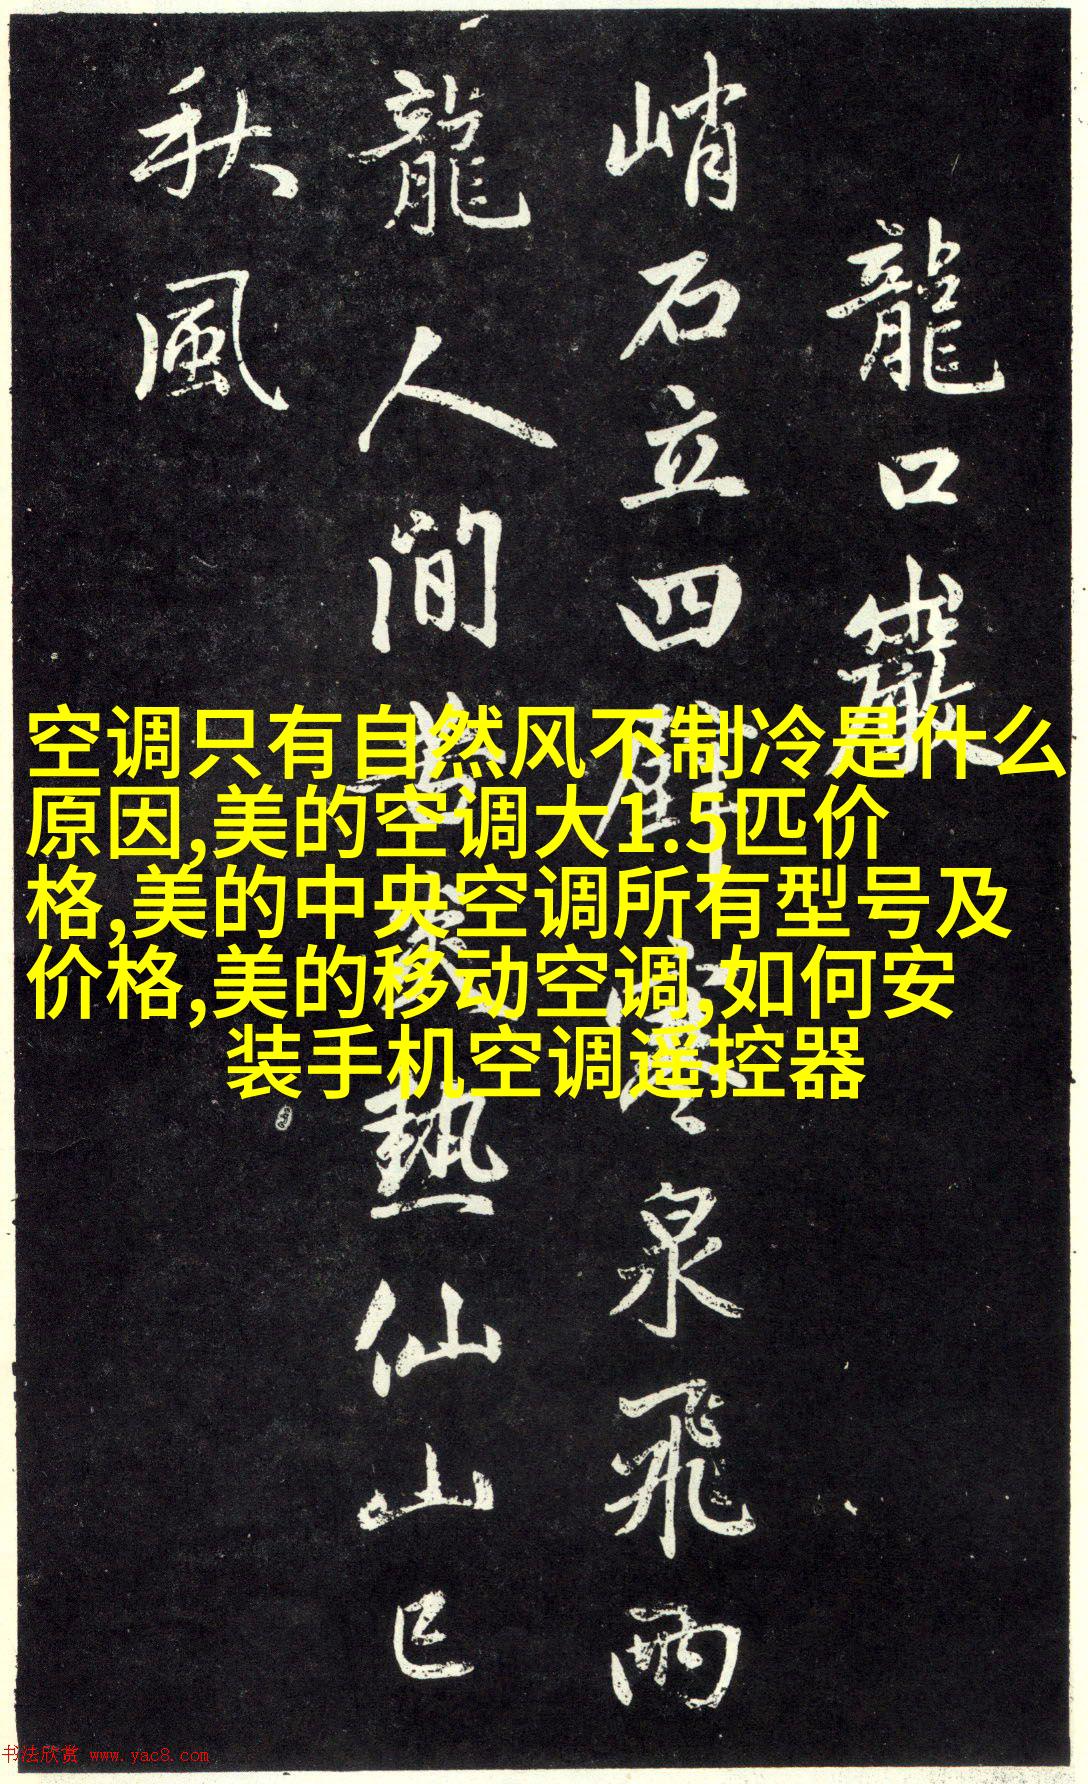 龍口巖
峭石立四壁寒泉飛兩
龍人間苦炎熱仙山已
秋風
空调只有自然风不制冷是什么
原因,美的空调大1.5匹价
格,美的中央空调所有型号及
价格,美的移动空调,如何安
装手机空调遥控器
书法欣赏 www.yac8.com